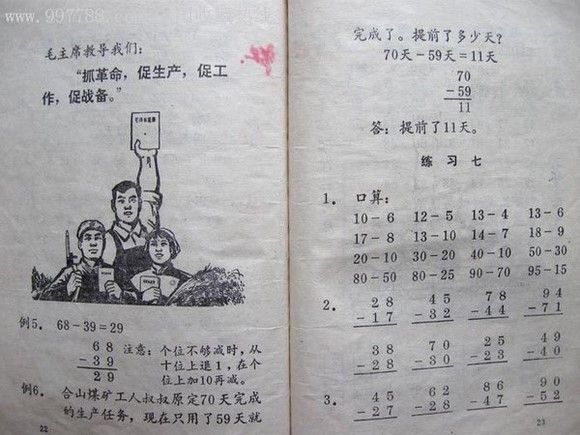 www.997788.com
毛主席教导我们:
“抓革命，促生产，促工
作，促战备。”
例5. 68-39=29
68
-39
29
注意: 个位不够减时，从
十位上退1，在个
位上加10再减。
例6. 合山煤矿工人叔叔原定70天完成
的生产任务，现在只用了59天就
22
完成了。提前了多少天?
70天-59天=11天
70
-59
11
答: 提前了11天。
练 习 七
1. 口算:
10-6 12-5 13-4 13-6
17-8 13-10 14-7 18-9
20-10 30-20 40-10 50-30
80-50 80-25 90-70 95-15
2. 28 45 78 94
-17 -32 -44 -71
38 70 25 49
-28 -30 -23 -40
3. 45 62 86 90
-27 -28 -47 -52
23